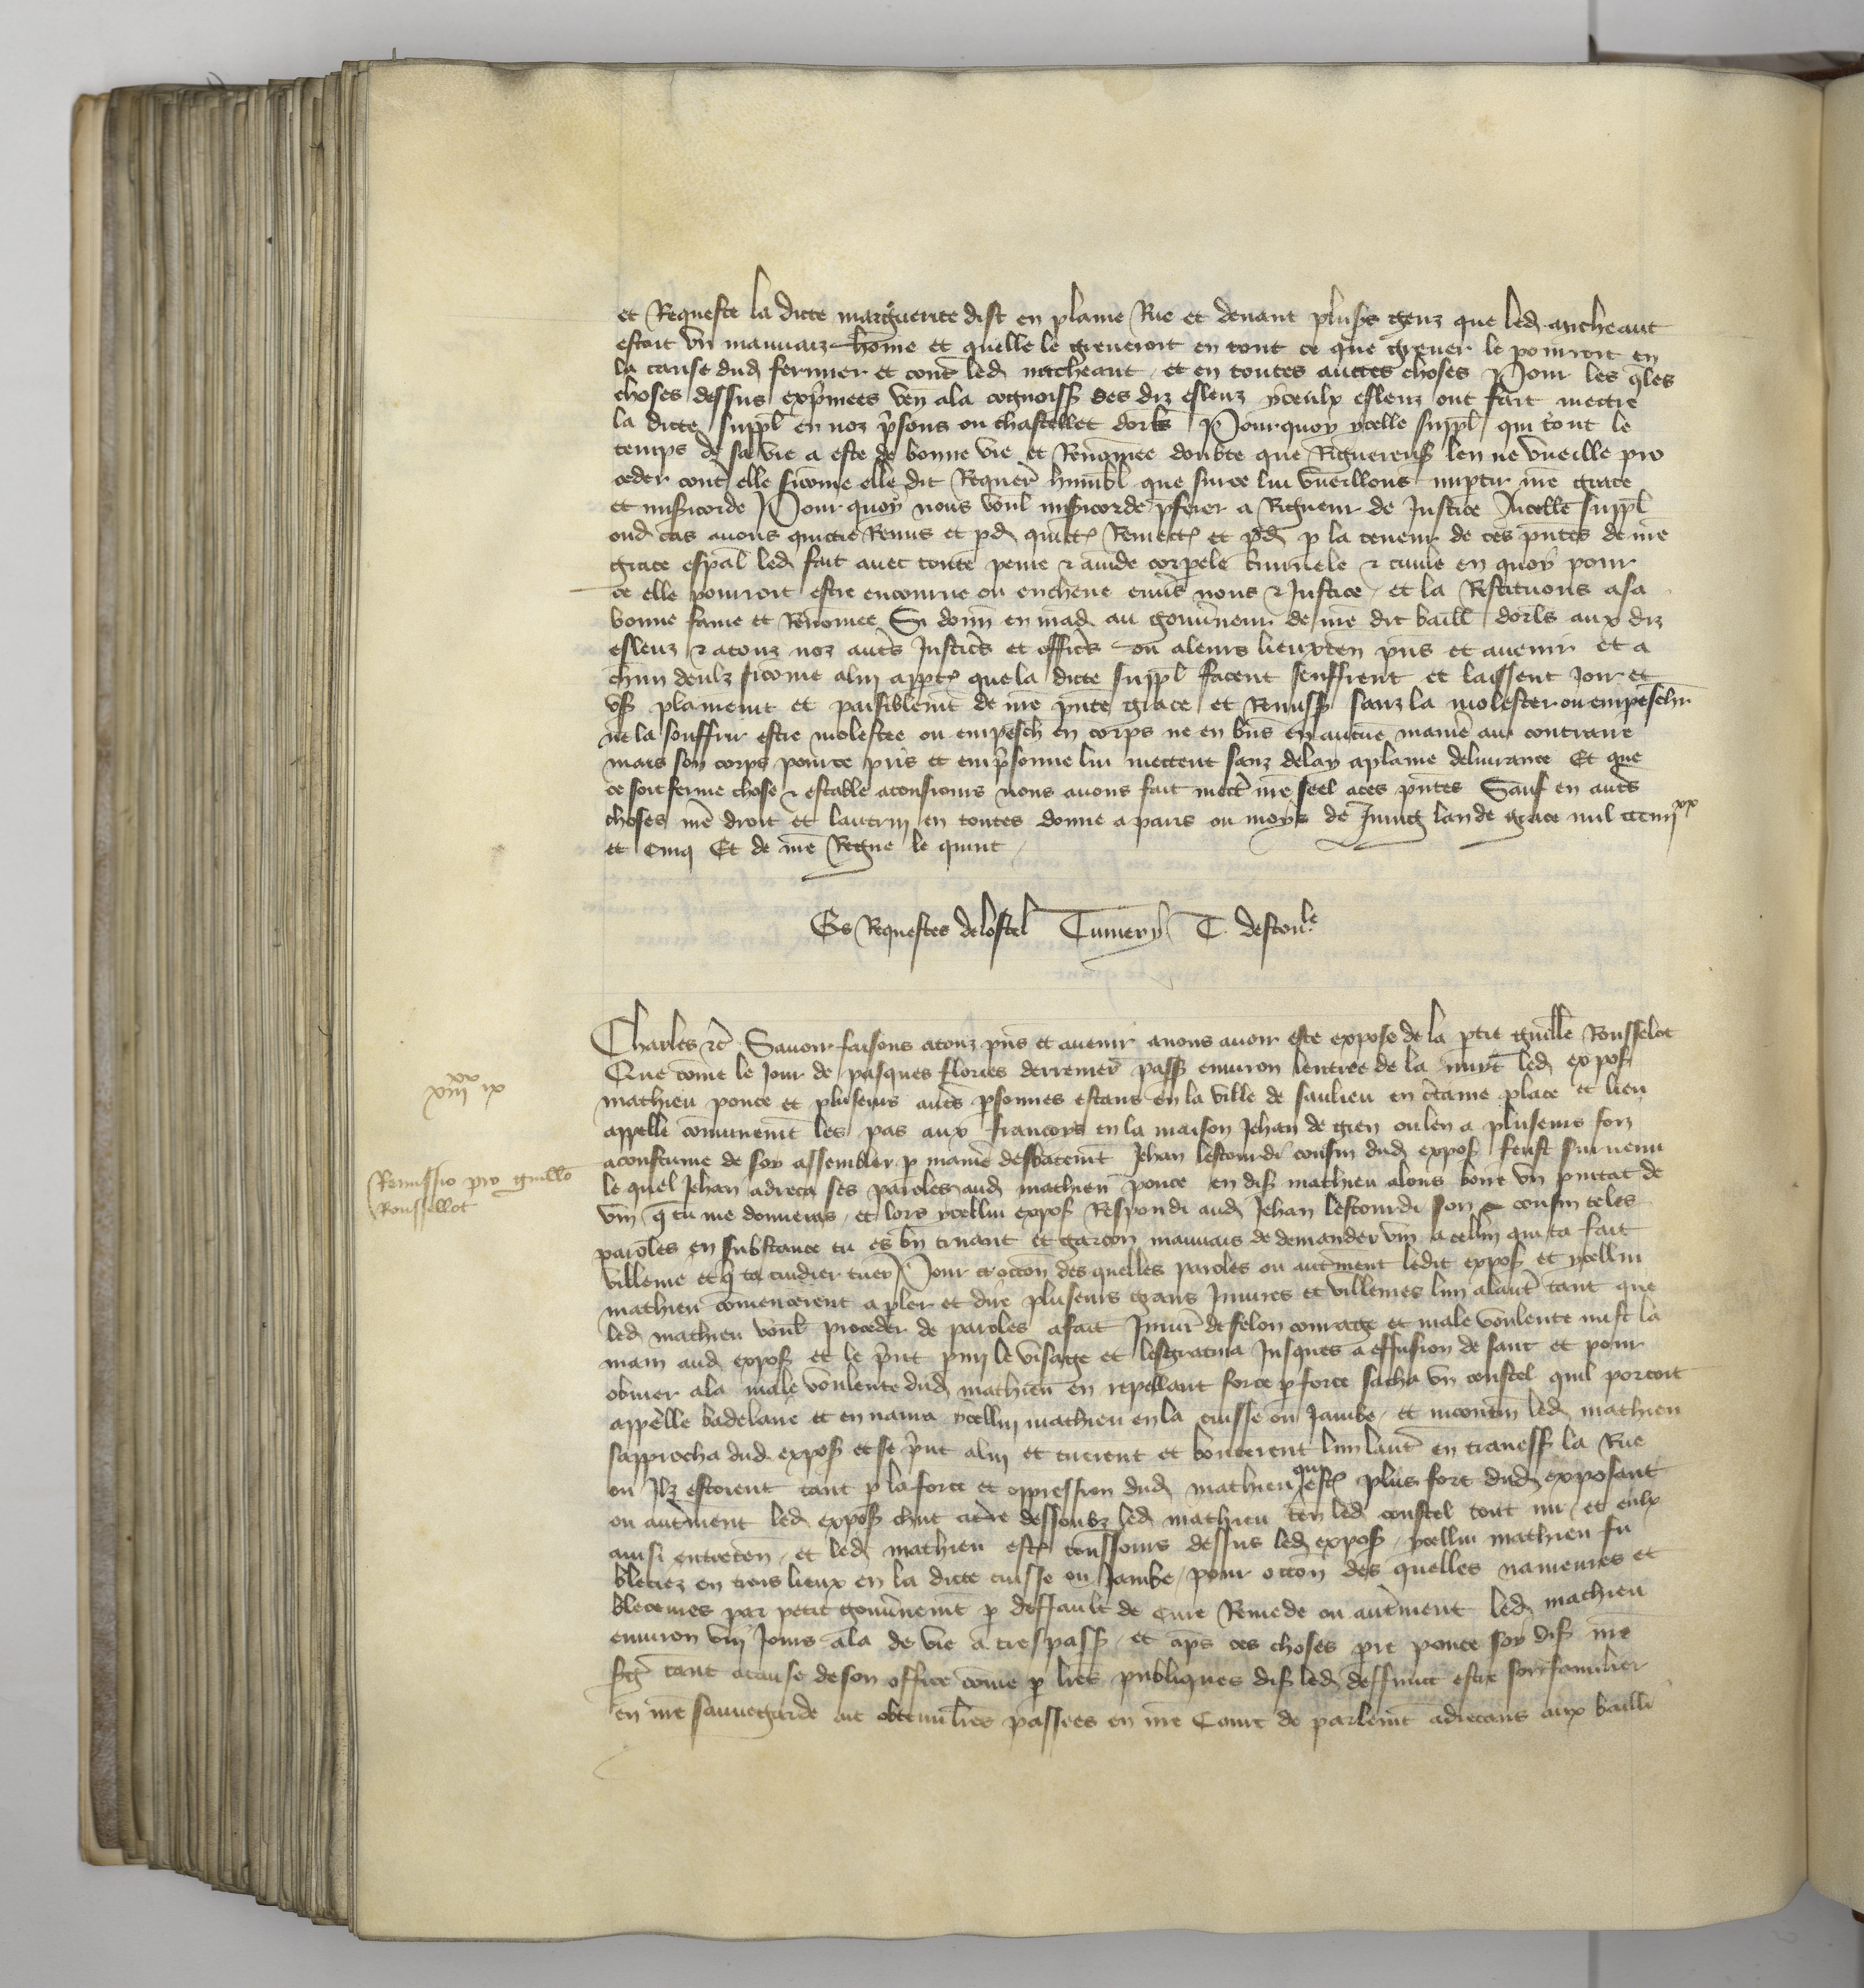 et Requeste la dicte marguerite dist en plaine Rue et devant plusrs genz que led. ancheaut
estoit un mauvaiz home et quelle le greveroit en tout ce que grever le pourroit en
la cause dud fermier et cont led ancheaut et en toutes autres choses Pour les qles
choses dessus exprimees ven ala cognoiss des diz esleuz yceulx esleuz ont fait mectre
la dicte suppl en noz prisons ou chastellet dorls Pourquoy ycelle suppl qui tout le
temps de sa vie a este de bonne vie et Renomee doubte que Riguereus len ne vueille pro
ceder cont elle sicome elle dit Requer humbl que sur ce lui vueillons impartir nre grace
et misicorde Pour quoy nous voul misicorde pferer a Rigueur de Justice Aicelle suppl
oud cas avons quictie Remis et pd quict Remect et pd p la teneur de ces pntes de nre
grace espal led fait avec toute peine & amde corpele criminele & civile en quoy pour
ce elle pourroit estre encourue ou encheue envs nous & Justice et la Restituons a sa
bonne fame et Renomee Si donn en mad au gouvneur de nre dit baill dorls aux diz
esleuz & a touz noz autrs Justicrs et officrs ou a leurs lieuxten pns et avenir et a
chun deulz sicome a lui appt que la dicte suppl facent seuffrent et laissent Joir et
us plainemt et paisiblemt de nre pnte grace et Remiss sanz la molester ou empeschr
ne la souffrir estre molestee ou empesch en corps ne en bns en aucune manie au contraire
mais son corps pour ce pris et emprisonne lui mettent sanz delay a plaine delivrance Et que
ce soit ferme chose & estable a tousjours nous avons fait mectr nre seel a ces pntes Sauf en autrs
choses nre droit et lautruy en toutes donne a paris ou moys de Juing lan de grace mil ccciiii xx
et cinq Et de nre Regne le quint
Es Requestes de lostel Tumery T. destoule
Charles etc Savoir faisons a touz pns et avenir a nous avoir este expose de la ptie guille Rousselot
Que come le Jour de pasques flories derremer pass environ lentree de la nuyt led expos
mathieu ponce et plusieurs autrs psonnes estans en la ville de saulieu en ctaine place et lieu
appelle comunemt les pas aux francoys en la maison Jehan de gien ou len a plusieurs foiz
acoustume de soy assembler p manie desbatemt Jehan lestourdi cousin dud expos feust survenu
le quel Jehan adreca ses paroles aud mathieu ponce en dis mathieu alons boire un pintat de
vin q tu me donneras et lors ycellui expos Respondi aud Jehan lestourdi son cousin teles
paroles en substance tu es bn truant et garcon mauvais de demander vin a cellui qui ta fait
villenie et q ta cuidier tuer Pour occon des quelles paroles ou autment ledit expos et ycellui
mathieu comencerent a pler et dire plusieurs grans Injures et villenies lun a lautr tant que
led mathieu voul proceder de paroles a fait Inmeu de felon courage et male voulente mist la
main aud expos et le prit pmy le visage et lesgratina Jusques a effusion de sanc et pour
obvier a la male voulente dud mathieu en repellant force p force sacha un coustel quil portoit
appelle badelaire et en navra ycellui mathieu en la cuisse ou Jambe et incontin led mathieu
sapprocha dud expos et se prit a lui et tirerent et bouterent lun lautr en travess la Rue
ou Ilz estoient tant p la force et oppression dud mathieu qui est plus fort dud exposant
ou autment led expos chut a tre dessoubz led mathieu ten led coustel tout nu et eulx
ainsi entreten et led mathieu est tousjours dessus led expos ycellui mathieu fu
bleciez en trois lieux en la dicte cuisse ou Jambe pour occon des quelles navreures et
bleceures par petit gouvnemt p deffault de cure Remede ou autment led mathieu
environ viij Jours ala de vie a trespass et aps ces choses pre ponce soy dis nre
sgt tant a cause de son office come p lres publiques dis led deffunct estre son familier
en nre sauvegarde ait obtenu lres passees en nre Court de parlemt adrecans aux bailli
xx
viii ix
Remissio pro guillo
Roussellot